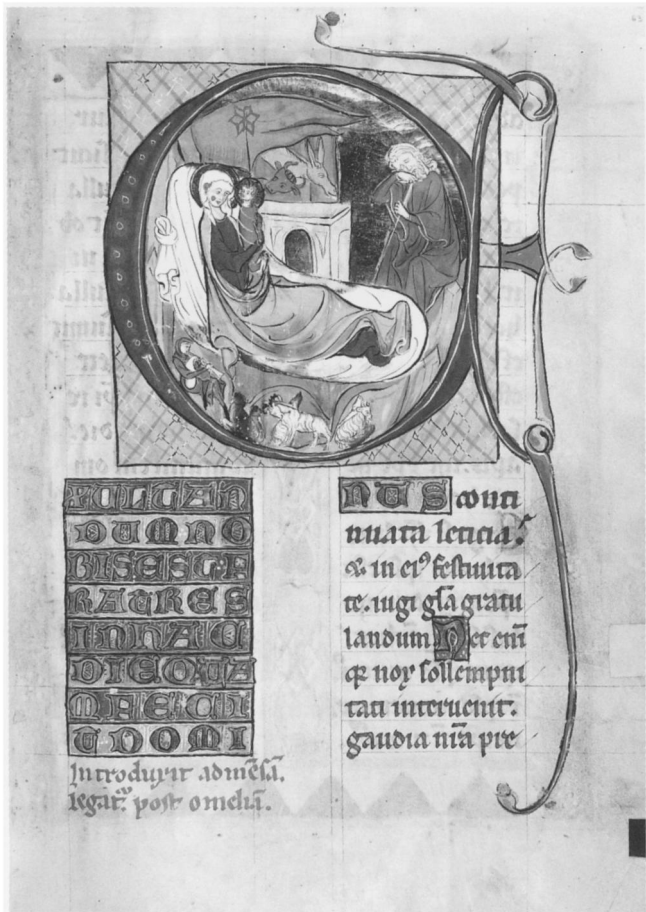 E
XULTAN
DUM NO
BIS EST F
RATRES
IN HAC
DIE
T DOMI
Introduxit ad mēsā.
legat᷑ post omeliā.
NUS conti
nuata leticia.
& in eiꝰ festiuita
te. iugi gl̄a gratu
landum. Nec enī
noꝝ sollempni
tati interuenit.
gaudia nr̄a pre